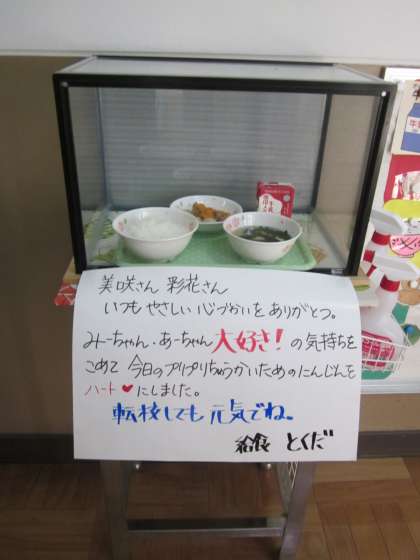 美咲さん 彩花さん
いつも やさしい 心づかいを ありがとう。
みーちゃん・あーちゃん 大好き！の気持ちを
こめて 今日の プリプリちゅうかいためのにんじんを
ハート❤にしました。
転校しても 元気でね。
給食 とくだ